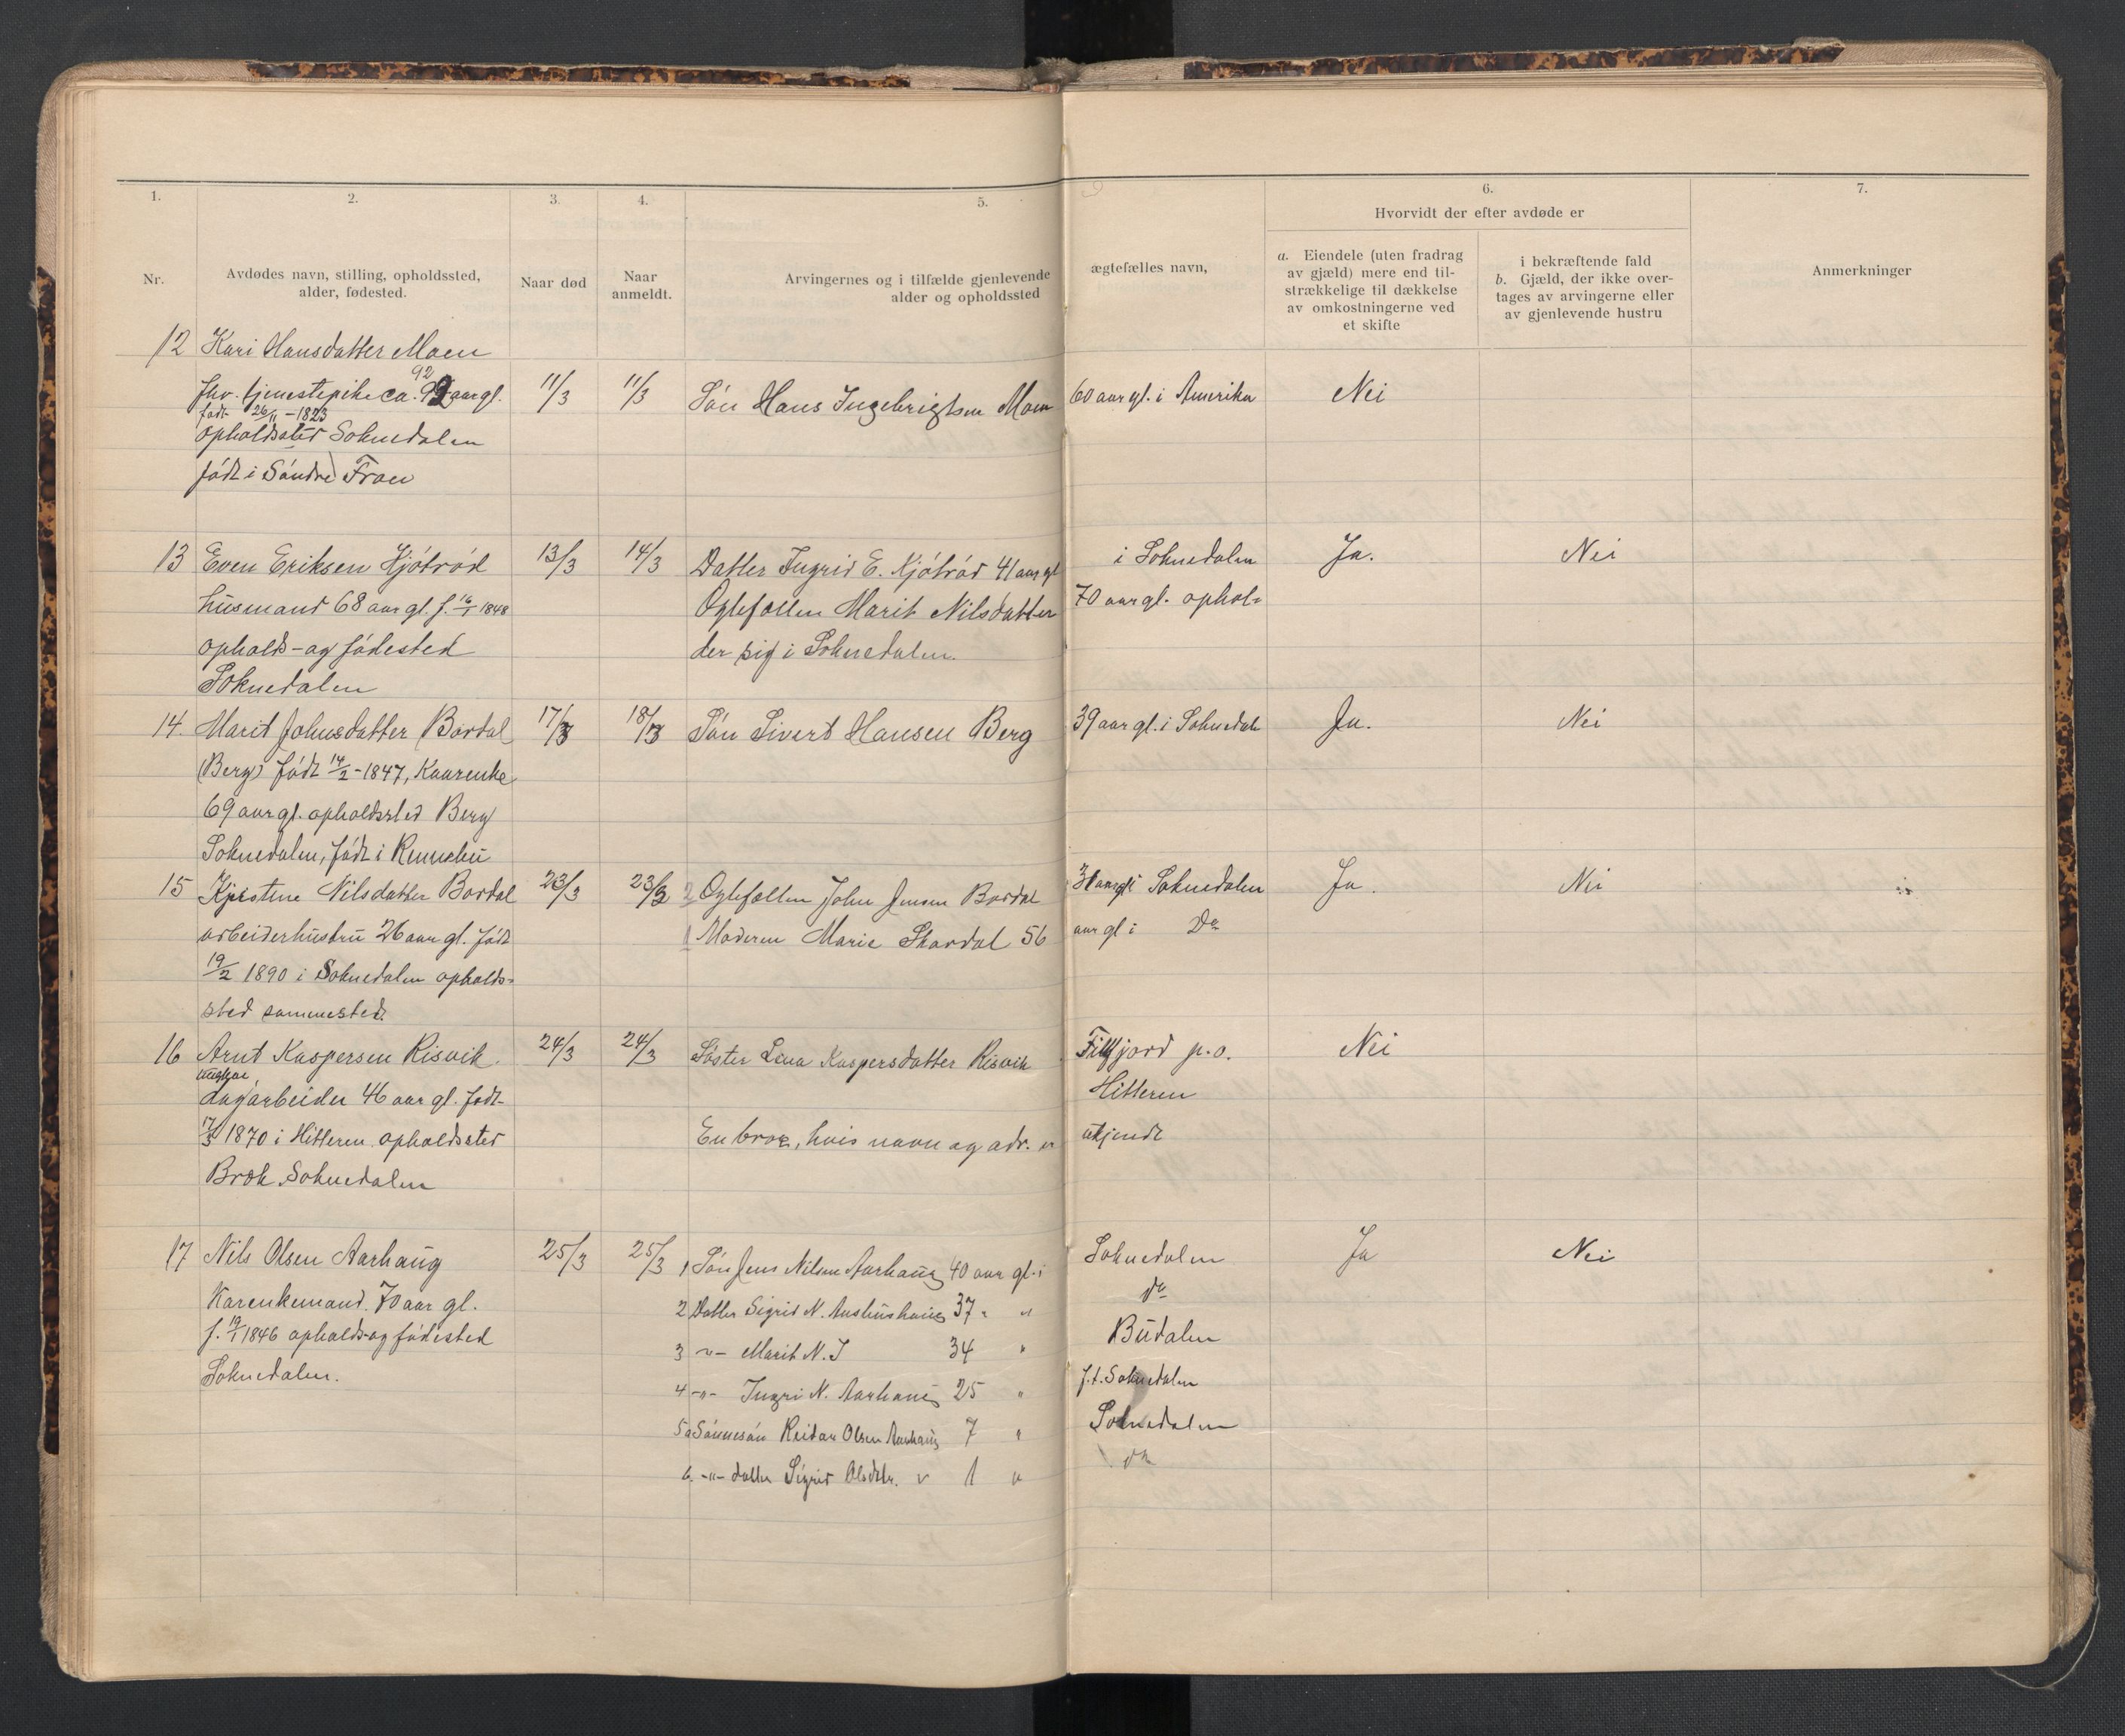 1. 2. 3. 4. 5. 6. 7.
Hvorvidt der efter avdøde er
Nr.
Avdødes navn, stilling, opholdssted,
alder, fødested.
Naar død
Naar
anmeldt.
Arvingernes og i tilfælde gjenlevende ægtefælles navn,
alder og opholdssted
a. Eiendele (uten fradrag
av gjæld) mere end til-
strækkelige til dækkelse
av omkostningerne ved
et skifte
i bekræftende fald
b. Gjæld, der ikke over-
tages av arvingerne eller
av gjenlevende hustru
Anmerkninger
12 Kari Hansdatter Moen
92
fhv. tjenestepike ca. 92 aar gl. 11/3 11/3 Søn Hans Ingebrigtsen Moen 60 aar gl. i Amerika Nei
født 26/11-1823
opholdssted Soknedalen
født i Søndre Fron
13 Even Eriksen Kjøtrød 13/3 14/3 Datter Ingrid E. Kjøtrød 41 aar gl i Soknedalen Ja. Nei
husmand 68 aar gl. f. 16/1 1848 Egtefællen Marit Nilsdatter 70 aar gl. ophol-
opholds- og fødested der sig i Soknedalen.
Soknedalen
14. Marit Johnsdatter Bordal 17/3 18/3 Søn Sivert Hansen Berg 39 aar gl. i Soknedal Ja. Nei
(Berg) født 14/2-1847, Kaarenke
69 aar gl. opholdssted Berg
Soknedalen, født i Rennebu
15 Kjerstine Nilsdatter Bordal 23/3 23/3 2 Egtefællen John Jensen Bordal 31 aar gl i Soknedalen Ja. Nei
arbeiderhustru 26 aar gl. født 1 Moderen Marie Skardal 56 aar gl i Do
19/2 1890 i Soknedalen opholds-
sted sammested.
16 Arnt Kaspersen Risvik. 24/3 24/3 Søster Lena Kaspersdatter Risvik Fillfjord p.o. Nei
ungkar,
dagarbeider 46 aar gl. født Hitteren
17/3 1870 i Hitteren opholdssted En bror, hvis navn og adr. er ukjendt
Brok Soknedalen
17 Nils Olsen Aarhaug 25/3 25/3 1 Søn Jens Nilsen Aarhaug 40 aar gl. i Soknedalen Ja Nei
Karenkemand. 70 aar gl. 2 Datter Sigrid N. 37 " " do
f. 19/1 1846 opholds- og fødested 3 -"- Marit N. I 34 " Budalen
Soknedalen. 4 -"- Ingri N. Aarhaug 25 " f.t. Soknedalen
5 Sønnesøn Reidar Olsen Aarhaug 7 " Soknedalen
6. -"- datter Sigrid Olsdtr. " 1 " do